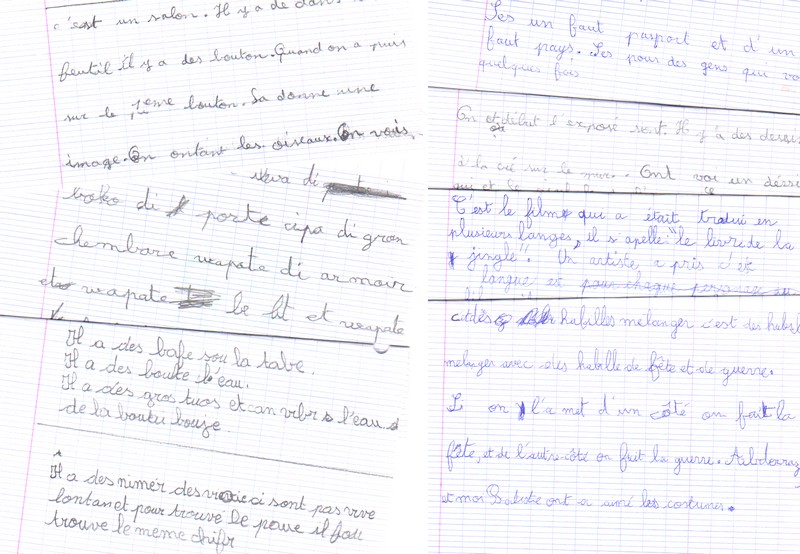 c'est un salon. Il y a de dans
feutil il y a des bouton. Quand on a puis
sur le 1eme bouton. Sa donne une
image. On ontant les oiseaux. On vois
di
boko di porte cipa di gron
chembare weapate di armoir
weapate le lit et weapate
Il a des bafe sou la table.
Il a des bouke l'eau.
Il a des gros tuos et can vibr l'eau
de la boutu bouje.
Il a des nimér des ci sont pas vive
lontan et pour trouvé le il fau
trouve le meme chifr
Ses un faut pasport et d'un
faut pays. Ses pour des gens qui
quelques fois
On début l'exposé sont. Il y a des
à la sur le mur. Ont voi un
C'est le film qui a était tradui en
plusieurs langes, il s'apelle: "le livre de la
jingle". Un artiste a pris
langue est pour chaque
habilles mélanger c'est des
melanger avec des habille de fête et de guerre.
Si on l'a met d'un côté on fait la
fête, et de l'autre côté on fait la guerre.
et moi ont a aimé les costumes.